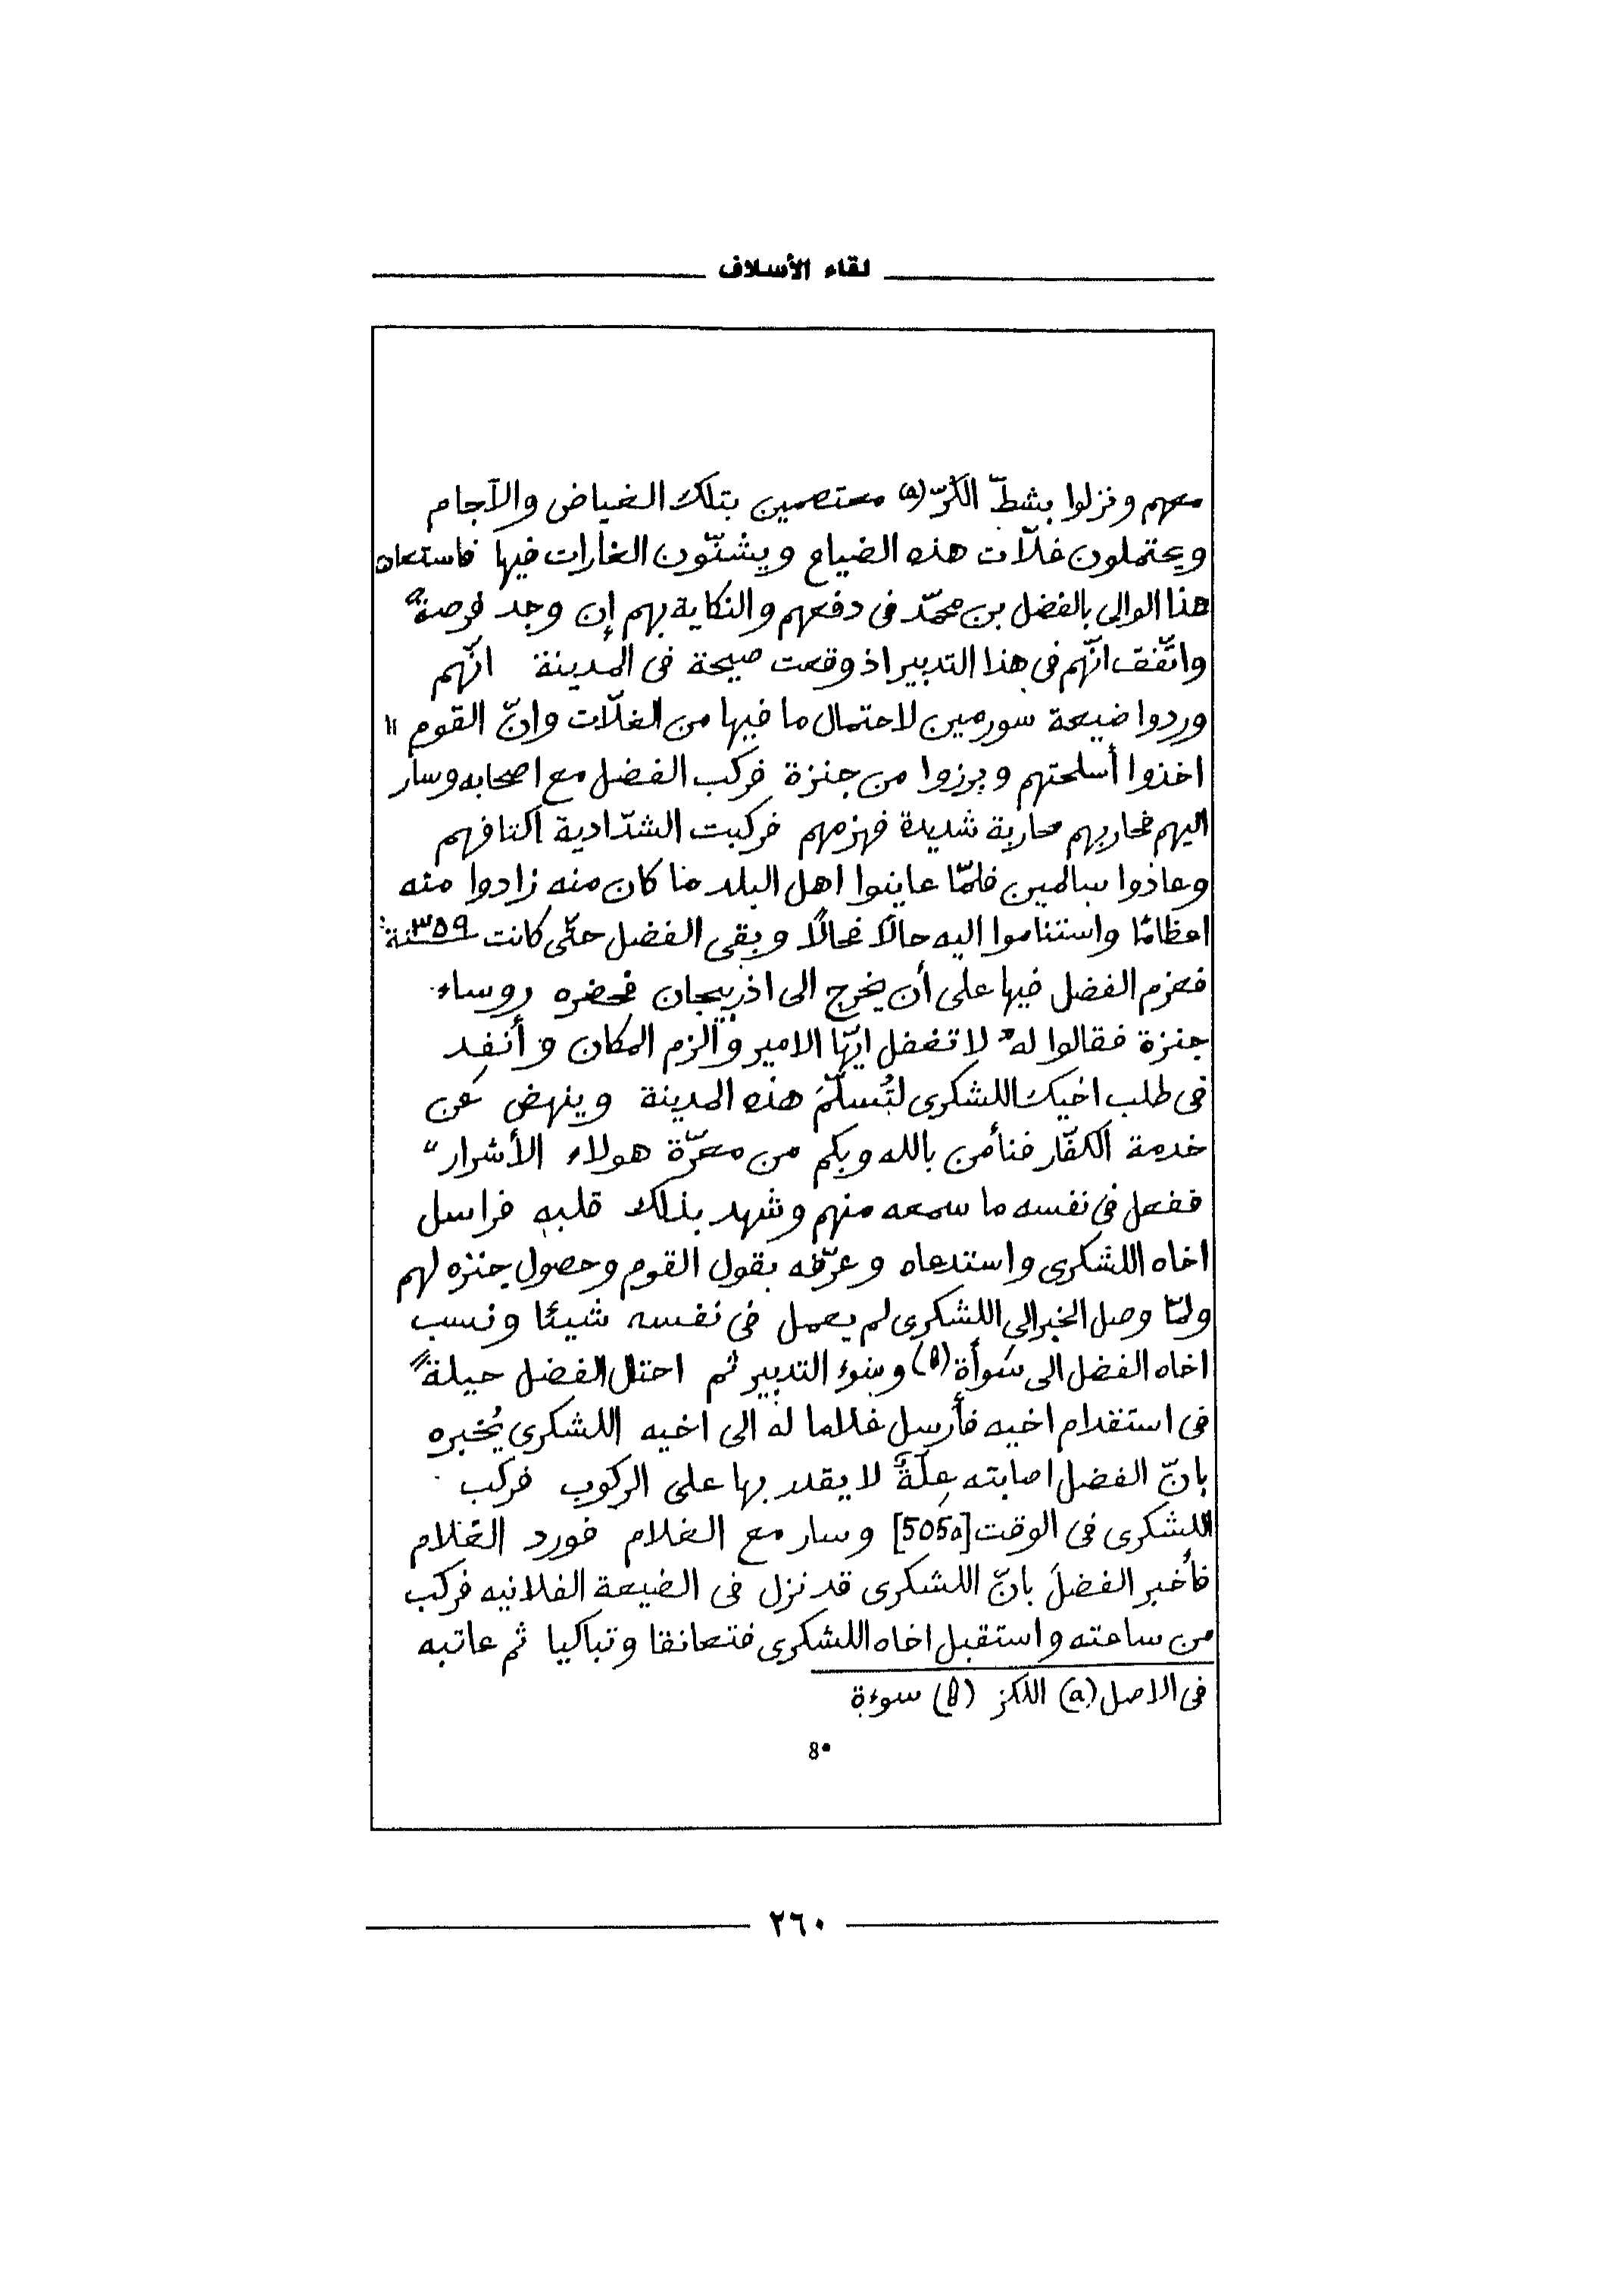 لقاء الأسلاف
معهم ونزلوا بشطّ الكُرّ (a) معتصمين بتلك الغياض والآجام
ويحتملون غلّات هذه الضياع ويشنّون الغارات فيها فاستعان
هذا الوالى بالفضل بن محمّد فى دفعهم والنكاية بهم إن وجد فرصةً
واتّفق انّهم فى هذا التدبير اذ وقعت صيحة فى المدينة انّهم
وردوا ضيعة سورمين لاحتمال ما فيها من الغلّات وانّ القوم "
اخذوا أسلحتهم وبرزوا من جنزة فركب الفضل مع اصحابه وسار
اليهم فحاربهم محاربة شديدة فهزمهم فركبت الشدّادية اكتافهم
وعاذوا سالمين فلمّا عاينوا اهل البلد منا كان منه زادوا منه
اعظامًا واستناموا اليه حالاً فحالاً وبقى الفضل حتّى كانت سنة ٣٥٩
فعزم الفضل فيها على أن يخرج الى اذربيجان فحضره روساء
جنزة فقالوا له" لا تغفل ايّها الامير وألزم المكان و أنفِد
فى طلب اخيك اللشكرى لتُسلّمَ هذه المدينة وينهض عن
خدمة الكفّار فنأمن بالله وبكم من معرّة هولاء الأشرار"
ففعل فى نفسه ما سمعه منهم وشهد بذلك قلبه فراسل
اخاه اللشكرى واستدعاه وعرّفه بقول القوم وحصول جنزه لهم
ولمّا وصل الخبر الى اللشكرى لم يعمل فى نفسه شيئا ونسب
اخاه الفضل الى سَوأة (b) وسوء التدبير ثم احتال الفضل حيلةً
فى استقدام اخيه فأرسل غلاما له الى اخيه اللشكرى يُخبره
بانّ الفضل اصابته عِلّةٌ لا يقدر بها على الركوب فركب
اللشكرى فى الوقت [505a] وسار مع الغلام فورد الغلام
فأخبر الفضلَ بانّ اللشكرى قد نزل فى الضيعة الفلانيه فركب
من ساعته واستقبل اخاه اللشكرى فتعانقا وتباكيا ثم عاتبه
فى الاصل (a) اللكز (b) سوءة
8•
٢٦٠